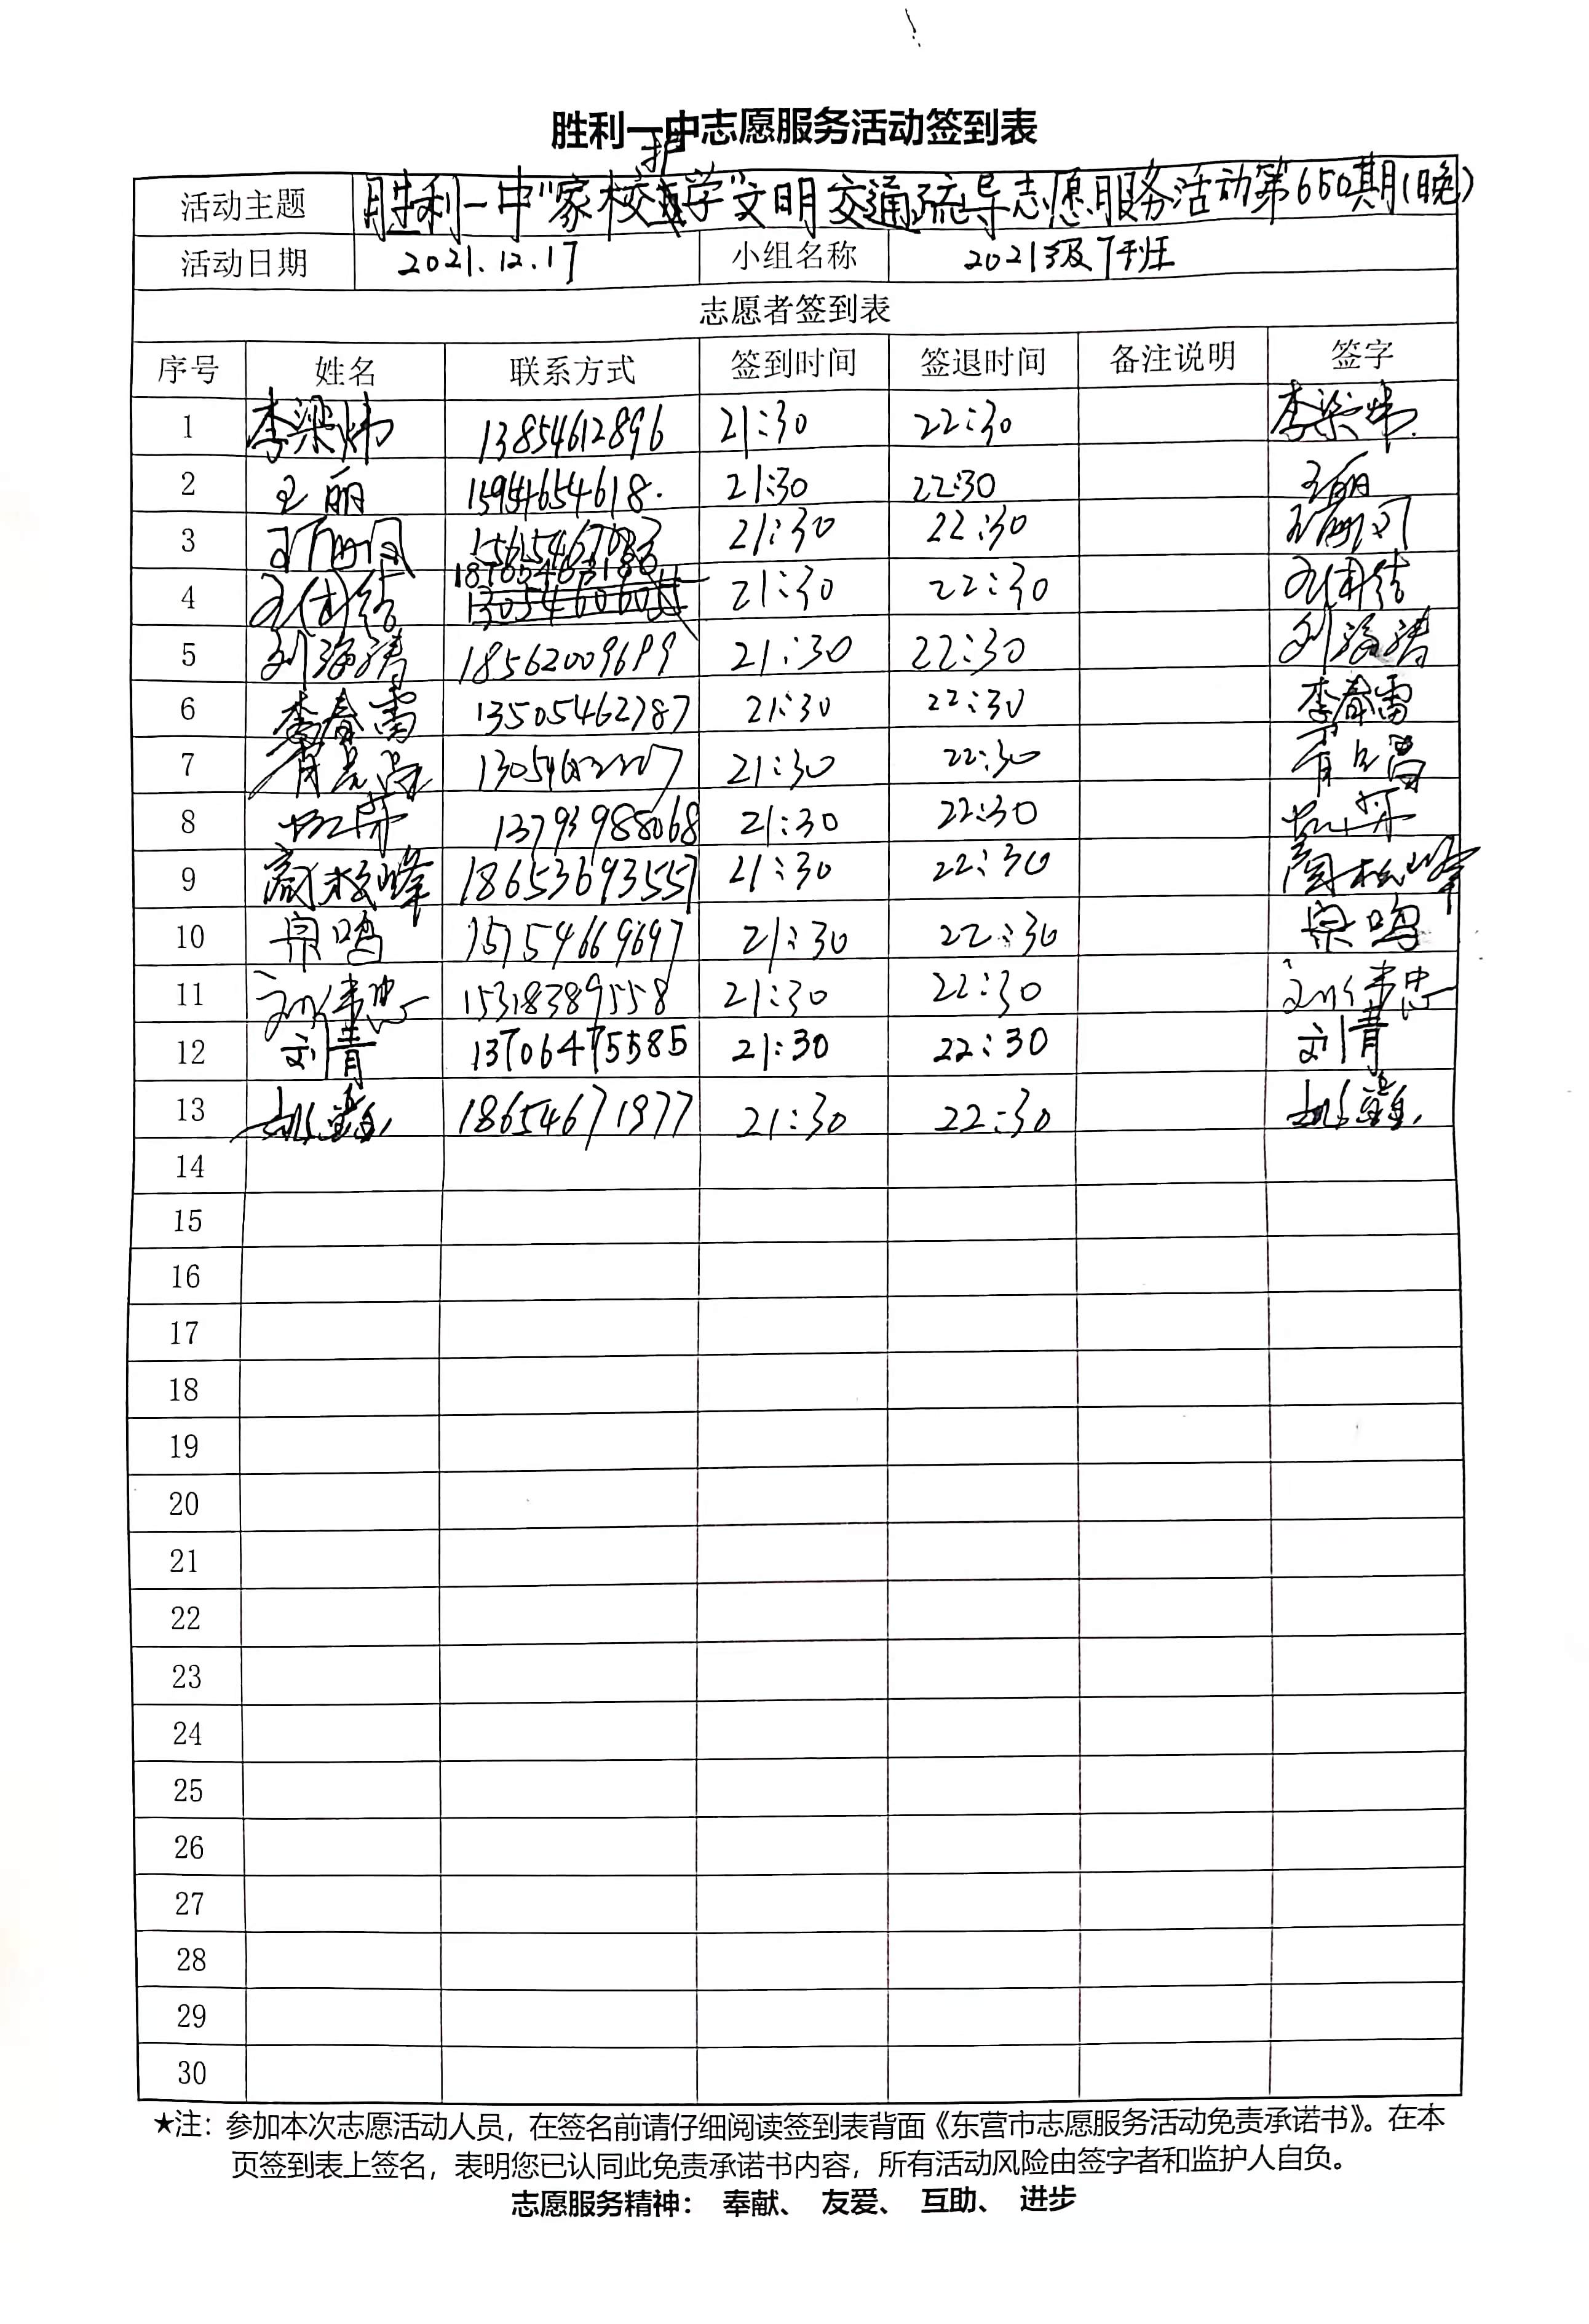 胜利一中志愿服务活动签到表
活动主题 胜利一中“家校护学”文明交通疏导志愿服务活动第650期(晚)
活动日期 2021.12.17 小组名称 2021级7班
志愿者签到表
序号 姓名 联系方式 签到时间 签退时间 备注说明 签字
1 李梁炜 13854612896 21:30 22:30 李梁炜
2 王丽 15954654618. 21:30 22:30 王丽
3 21:30 22:30
4 21:30 22:30
5 刘海涛 18562009699 21:30 22:30 刘海涛
6 李春雷 13505462787 21:30 22:30 李春雷
7 21:30 22:30
8 13793988068 21:30 22:30
9 18653693557 21:30 22:30
10 宗鸣 15754669697 21:30 22:30 宗鸣
11 刘伟忠 15318389558 21:30 22:30 刘伟忠
12 刘青 13706475585 21:30 22:30 刘青
13 18654671977 21:30 22:30
14
15
16
17
18
19
20
21
22
23
24
25
26
27
28
29
30
★注：参加本次志愿活动人员，在签名前请仔细阅读签到表背面《东营市志愿服务活动免责承诺书》。在本
页签到表上签名，表明您已认同此免责承诺书内容，所有活动风险由签字者和监护人自负。
志愿服务精神： 奉献、 友爱、 互助、 进步